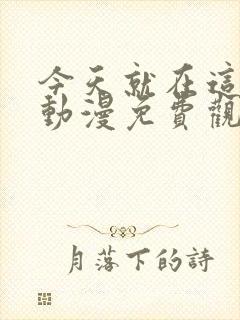 今天就在這
動漫免費觀
月落下的詩